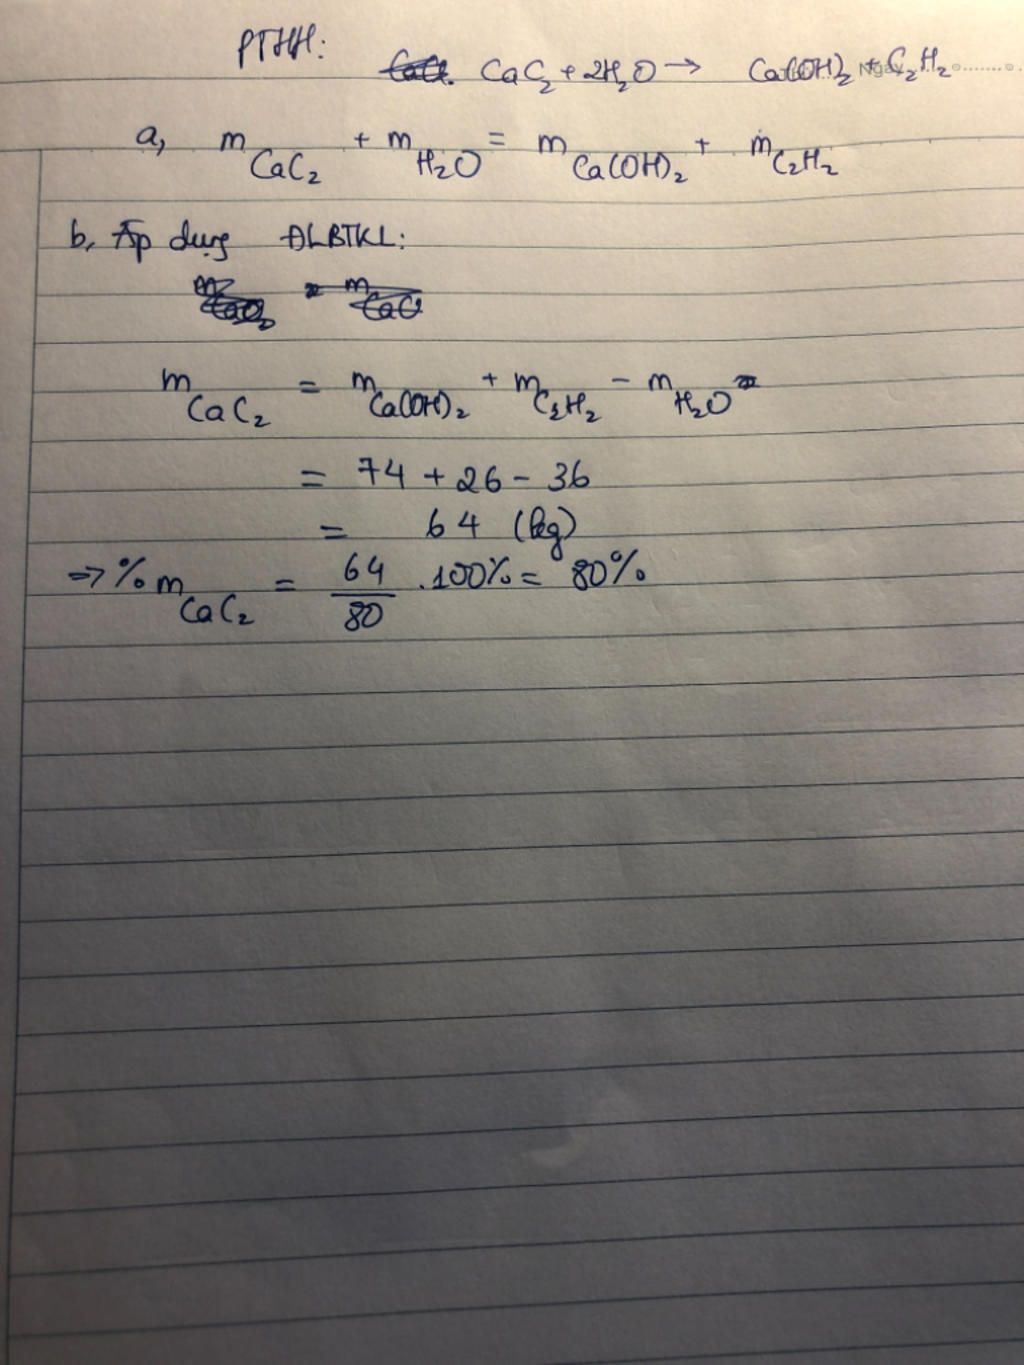 PTHH: CaC₂ + 2H₂O → Ca(OH)₂ + C₂H₂
Ngày
a, m CaC₂ + m H₂O = m Ca(OH)₂ + m C₂H₂
b, Áp dụng ĐLBTKL:
m CaC₂ = m Ca(OH)₂ + m C₂H₂ - m H₂O
= 74 + 26 - 36
= 64 (kg)
⇒ % m CaC₂ = 64/80 . 100% = 80%